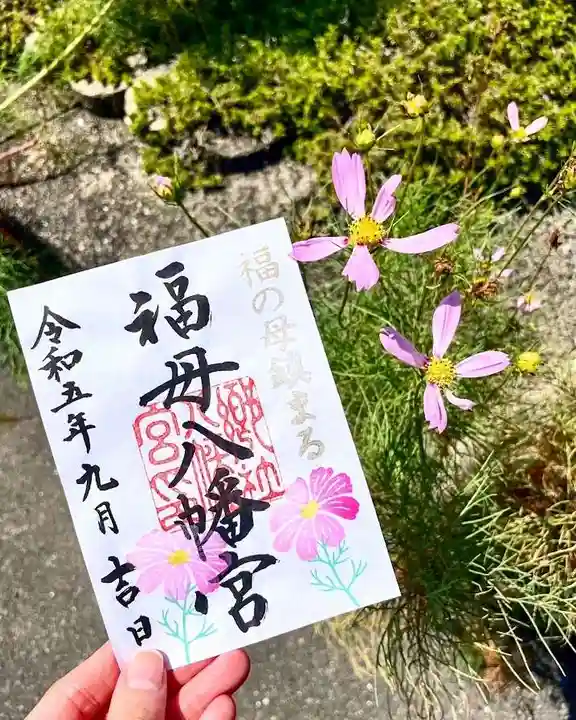 福の母鎮まる
福母八幡宮
令和五年九月吉日